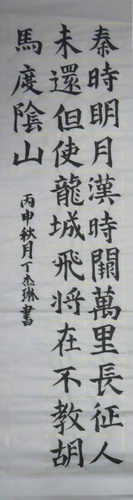 秦時明月漢時關萬里長征人
未還但使龍城飛将在不教胡
馬度陰山
丙申秋月丁杰琳書